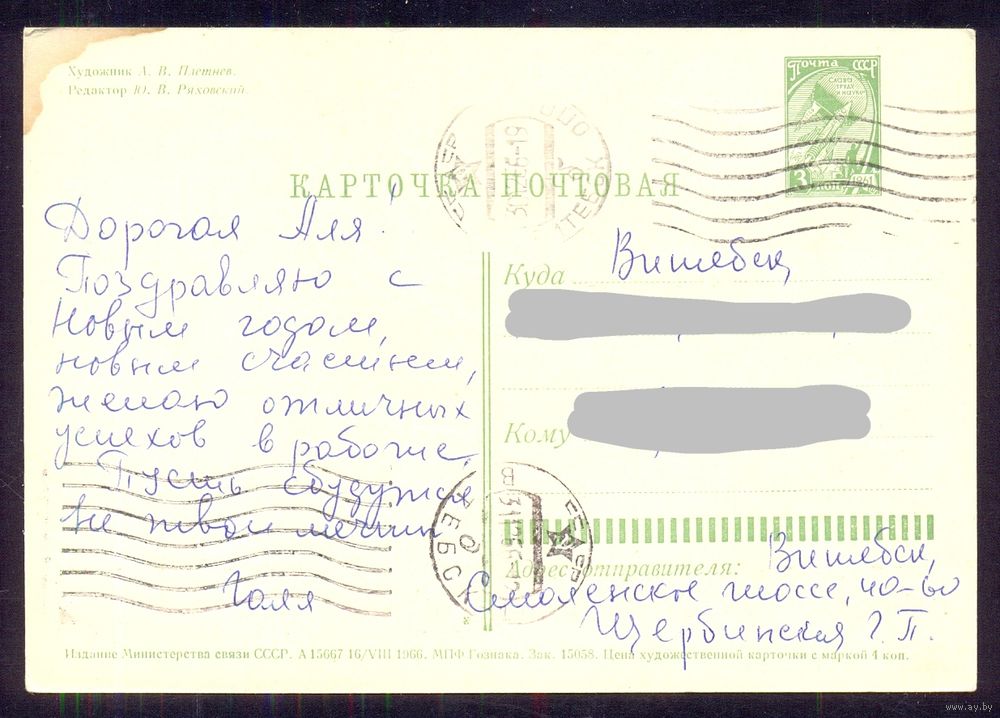 Художник А. В. Плетнев.
Редактор Ю. В. Ряховский
Почта СССР
СЛАВА
ТРУДУ
И НАУКЕ
3
КОП
1961
КАРТОЧКА ПОЧТОВАЯ
Дорогая Аля!
Поздравляю с
Новым годом,
новым счастьем,
желаю отличных
успехов в работе.
Пусть сбудутся
все твои мечты
Галя
Куда Витебск,
Кому
Адрес отправителя: Витебск,
Смоленское шоссе, 40-60
Щербинская Г. П.
Издание Министерства связи СССР. А 15667 16/VIII 1966. МПФ Гознака. Зак. 15058. Цена художественной карточки с маркой 4 коп.
www.ay.by